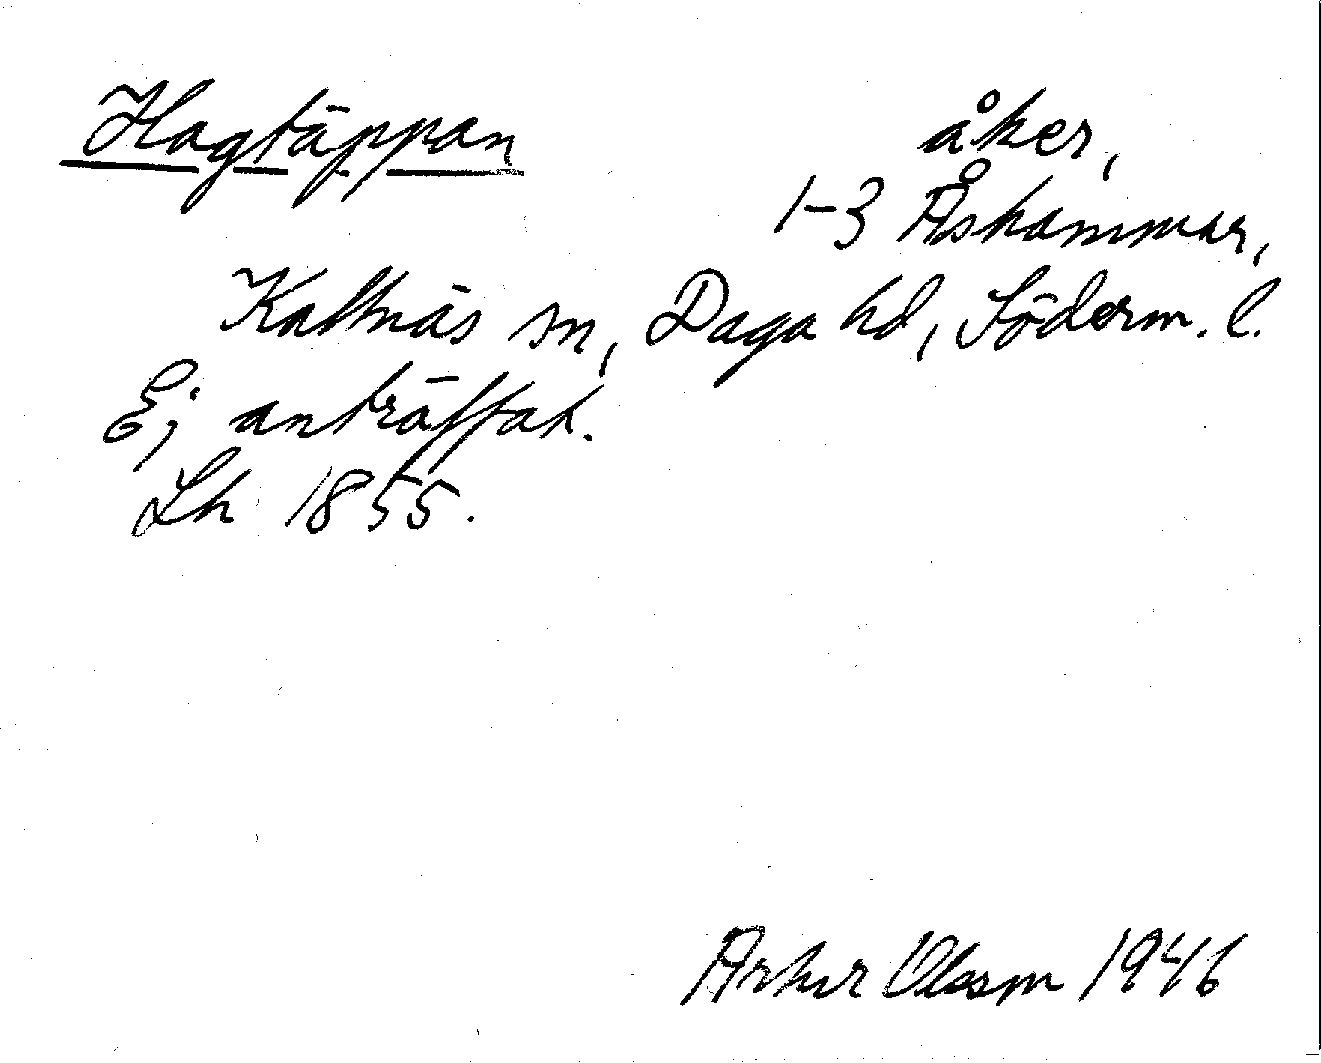 Hagtäppan åker,
1-3 Åshammar,
Kattnäs sn, Daga hd, Söderm. l.
Ej anträffat.
Lh 1855.
Artur Olsson 1946